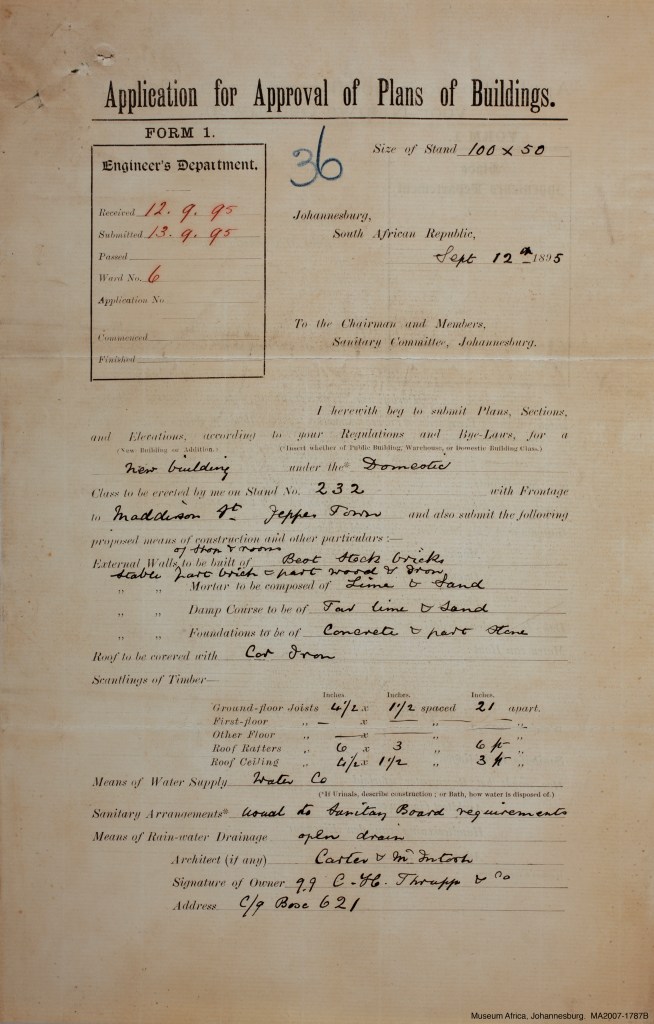 Application for Approval of Plans of Buildings.
FORM 1.
Engineer's Department.
Received 12. 9. 95
Submitted 13. 9. 95
Passed
Ward No. 6
Application No.
Commenced
Finished
36
Size of Stand 100 x 50
Johannesburg,
South African Republic,
Sept 12th 1895
To the Chairman and Members,
Sanitary Committee, Johannesburg.
I herewith beg to submit Plans, Sections,
and Elevations, according to your Regulations and Bye-Laws, for a
(New Building or Addition.) (*Insert whether of Public Building, Warehouse, or Domestic Building Class.)
New building under the* Domestic
Class to be erected by me on Stand No. 232 with Frontage
to Maddison St Jeppes Town and also submit the following
proposed means of construction and other particulars :—
of shop & rooms
External Walls to be built of Best Stock bricks
Stable part brick & part wood & Iron
„ „ Mortar to be composed of Lime & Sand
„ „ Damp Course to be of Tar lime & Sand
„ „ Foundations to be of Concrete & part Stone
Roof to be covered with Cor Iron
Scantlings of Timber—
Inches. Inches. Inches.
Ground-floor Joists 4½ x 1½ spaced 21 apart.
First-floor „ — x — „ — „
Other Floor „ — x — „ — „
Roof Rafters „ 6 x 3 „ 6 ft „
Roof Ceiling „ 4½ x 1½ „ 3 ft „
Means of Water Supply Water Co
(*If Urinals, describe construction ; or Bath, how water is disposed of.)
Sanitary Arrangements* usual to Sanitary Board requirements
Means of Rain-water Drainage open drain
Architect (if any) Carter & McIntosh
Signature of Owner C. H. Thrupp & Co
Address Box 621
Museum Africa, Johannesburg. MA2007-1787B